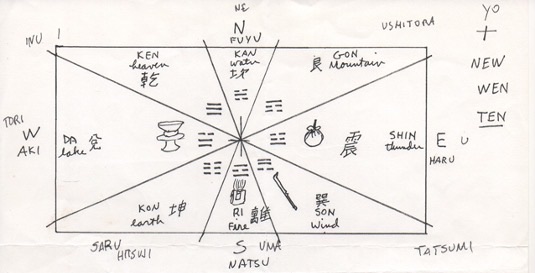 NE
N
FUYU
USHITORA
YO
INU
KEN
heaven
乾
KAN
water
坎
艮
GON
Mountain
NEW
WEN
TEN
TORI
W
AKI
DA
lake
兌
震
SHIN
thunder
E
U
HARU
KON
earth
坤
RI
Fire
離
巽
SON
Wind
SARU
S
UMA
NATSU
TATSUMI